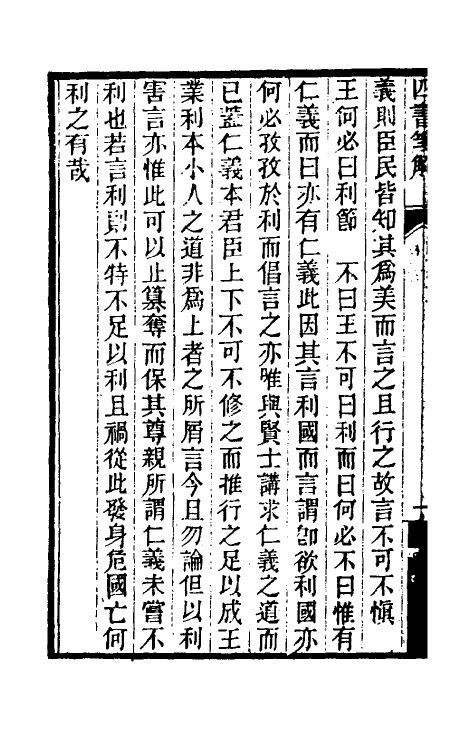 四書筆解
義則臣民皆知其爲美而言之且行之故言不可不愼
王何必曰利節　不曰王不可曰利而曰何必不曰惟有
仁義而曰亦有仁義此因其言利國而言謂卽欲利國亦
何必孜孜於利而倡言之亦唯與賢士講求仁義之道而
已蓋仁義本君臣上下不可不修之而推行之足以成王
業利本小人之道非爲上者之所屑言今且勿論但以利
害言亦惟此可以止篡奪而保其尊親所謂仁義未嘗不
利也若言利則不特不足以利且禍從此發身危國亡何
利之有哉